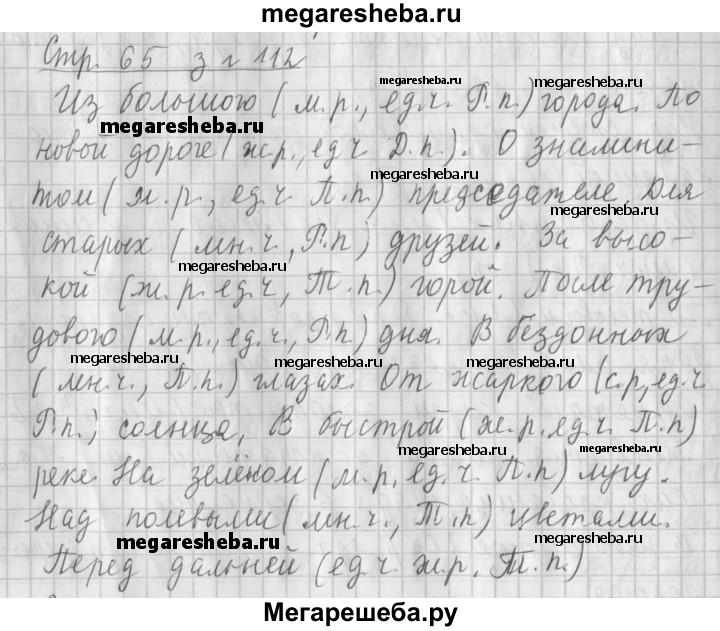 megaresheba.ru
Стр. 65 з г 112
megaresheba.ru
megaresheba.ru
Из большого (м.р., ед.ч. Р.п.) города. По
megaresheba.ru
новой дороге (ж.р., ед ч Д.п.). О знамени-
megaresheba.ru
том (м.р., ед.ч П.п.) председателе. Для
megaresheba.ru
старых (мн.ч., Р.п) друзей. За высо-
megaresheba.ru
кой (ж.р. ед.ч, Т.п.) горой. После тру-
дового (м.р., ед.ч., Р.п) дня. В бездонных
megaresheba.ru
megaresheba.ru
(мн.ч., П.п.) глазах. От жаркого (с.р, ед.ч.
megaresheba.ru
Р.п.) солнца. В быстрой (ж.р. ед.ч. П.п)
megaresheba.ru
реке На зелёном (м.р. ед.ч. П.п) лугу.
megaresheba.ru
Над полевыми (мн.ч., Т.п) цветами.
megaresheba.ru
Перед дальней (ед.ч. ж.р. Т.п.)
Мегарешеба.ру